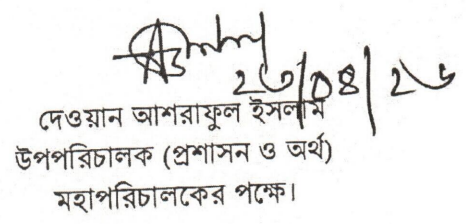 ২৩/০৪/২৬
দেওয়ান আশরাফুল ইসলাম
উপপরিচালক (প্রশাসন ও অর্থ)
মহাপরিচালকের পক্ষে।